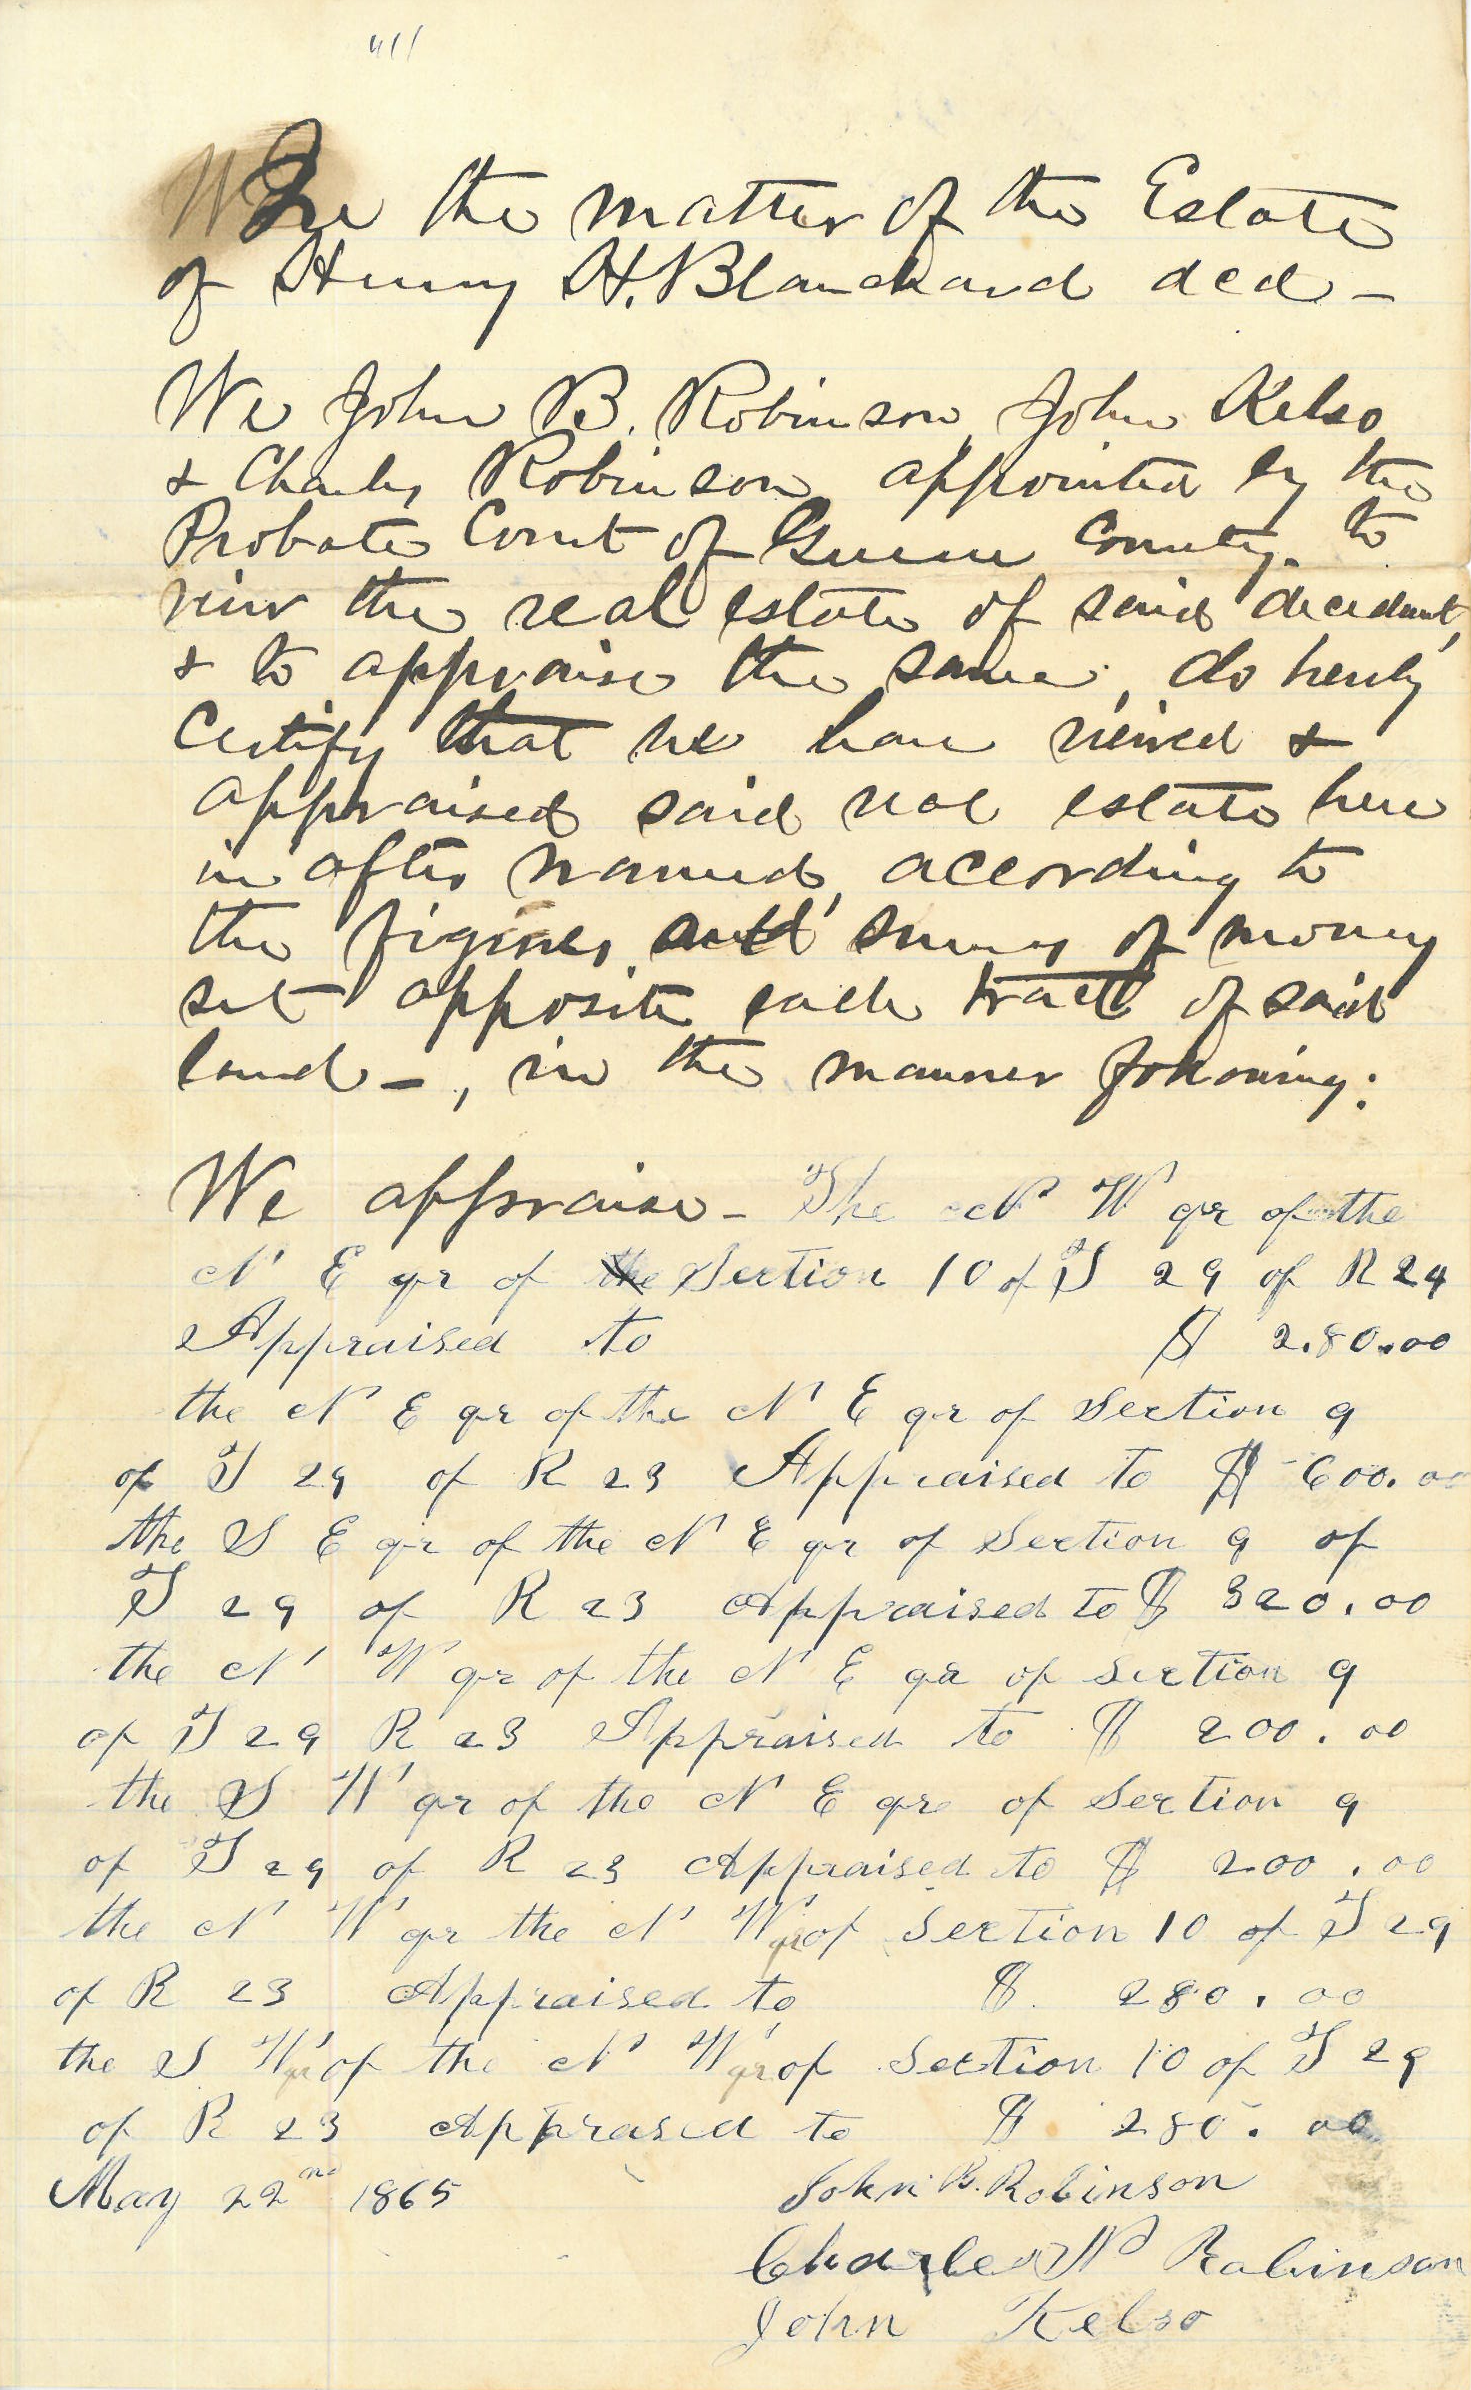 In the matter of the Estate
of Henry H. Blanchard decd -
We John B. Robinson, John Kelso
& Charles Robinson appointed by the
Probate Court of Greene County. to
view the real estate of said decedent,
& to appraise the same, do hereby
Certify that we have viewed &
appraised said real estate here
in after named, according to
the figures and sums of money
set opposite each tract of said
land -, in the manner following:
We appraise - The N W qr of the
N E qr of the Section 10 of T 29 of R 24
Appraised to $ 280.00
the N E qr of the N E qr of Section 9
of T 29 of R 23 Appraised to $ 600.00
the S E qr of the N E qr of Section 9 of
T 29 of R 23 Appraised to $ 320.00
the N W qr of the N E qr of Section 9
of T 29 R 23 Appraised to $ 200.00
the S W qr of the N E qre of Section 9
of T 29 of R 23 Appraised to $ 200.00
the N W qr the N W qr of Section 10 of T 29
of R 23 Appraised to $ 280.00
the S W qr of the N W qr of Section 10 of T 29
of R 23 Apprased to $ 280.00
May 22nd 1865 John B. Robinson
Charles W Robinson
John Kelso